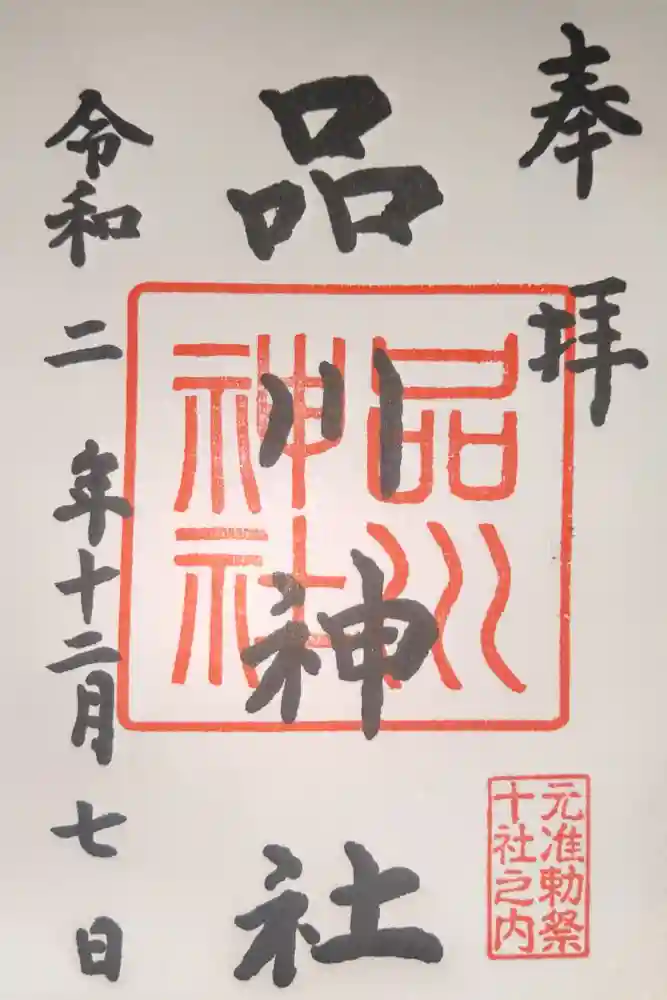 奉拝
品川神社
品川
神社
元准勅祭
十社之内
令和二年十二月七日